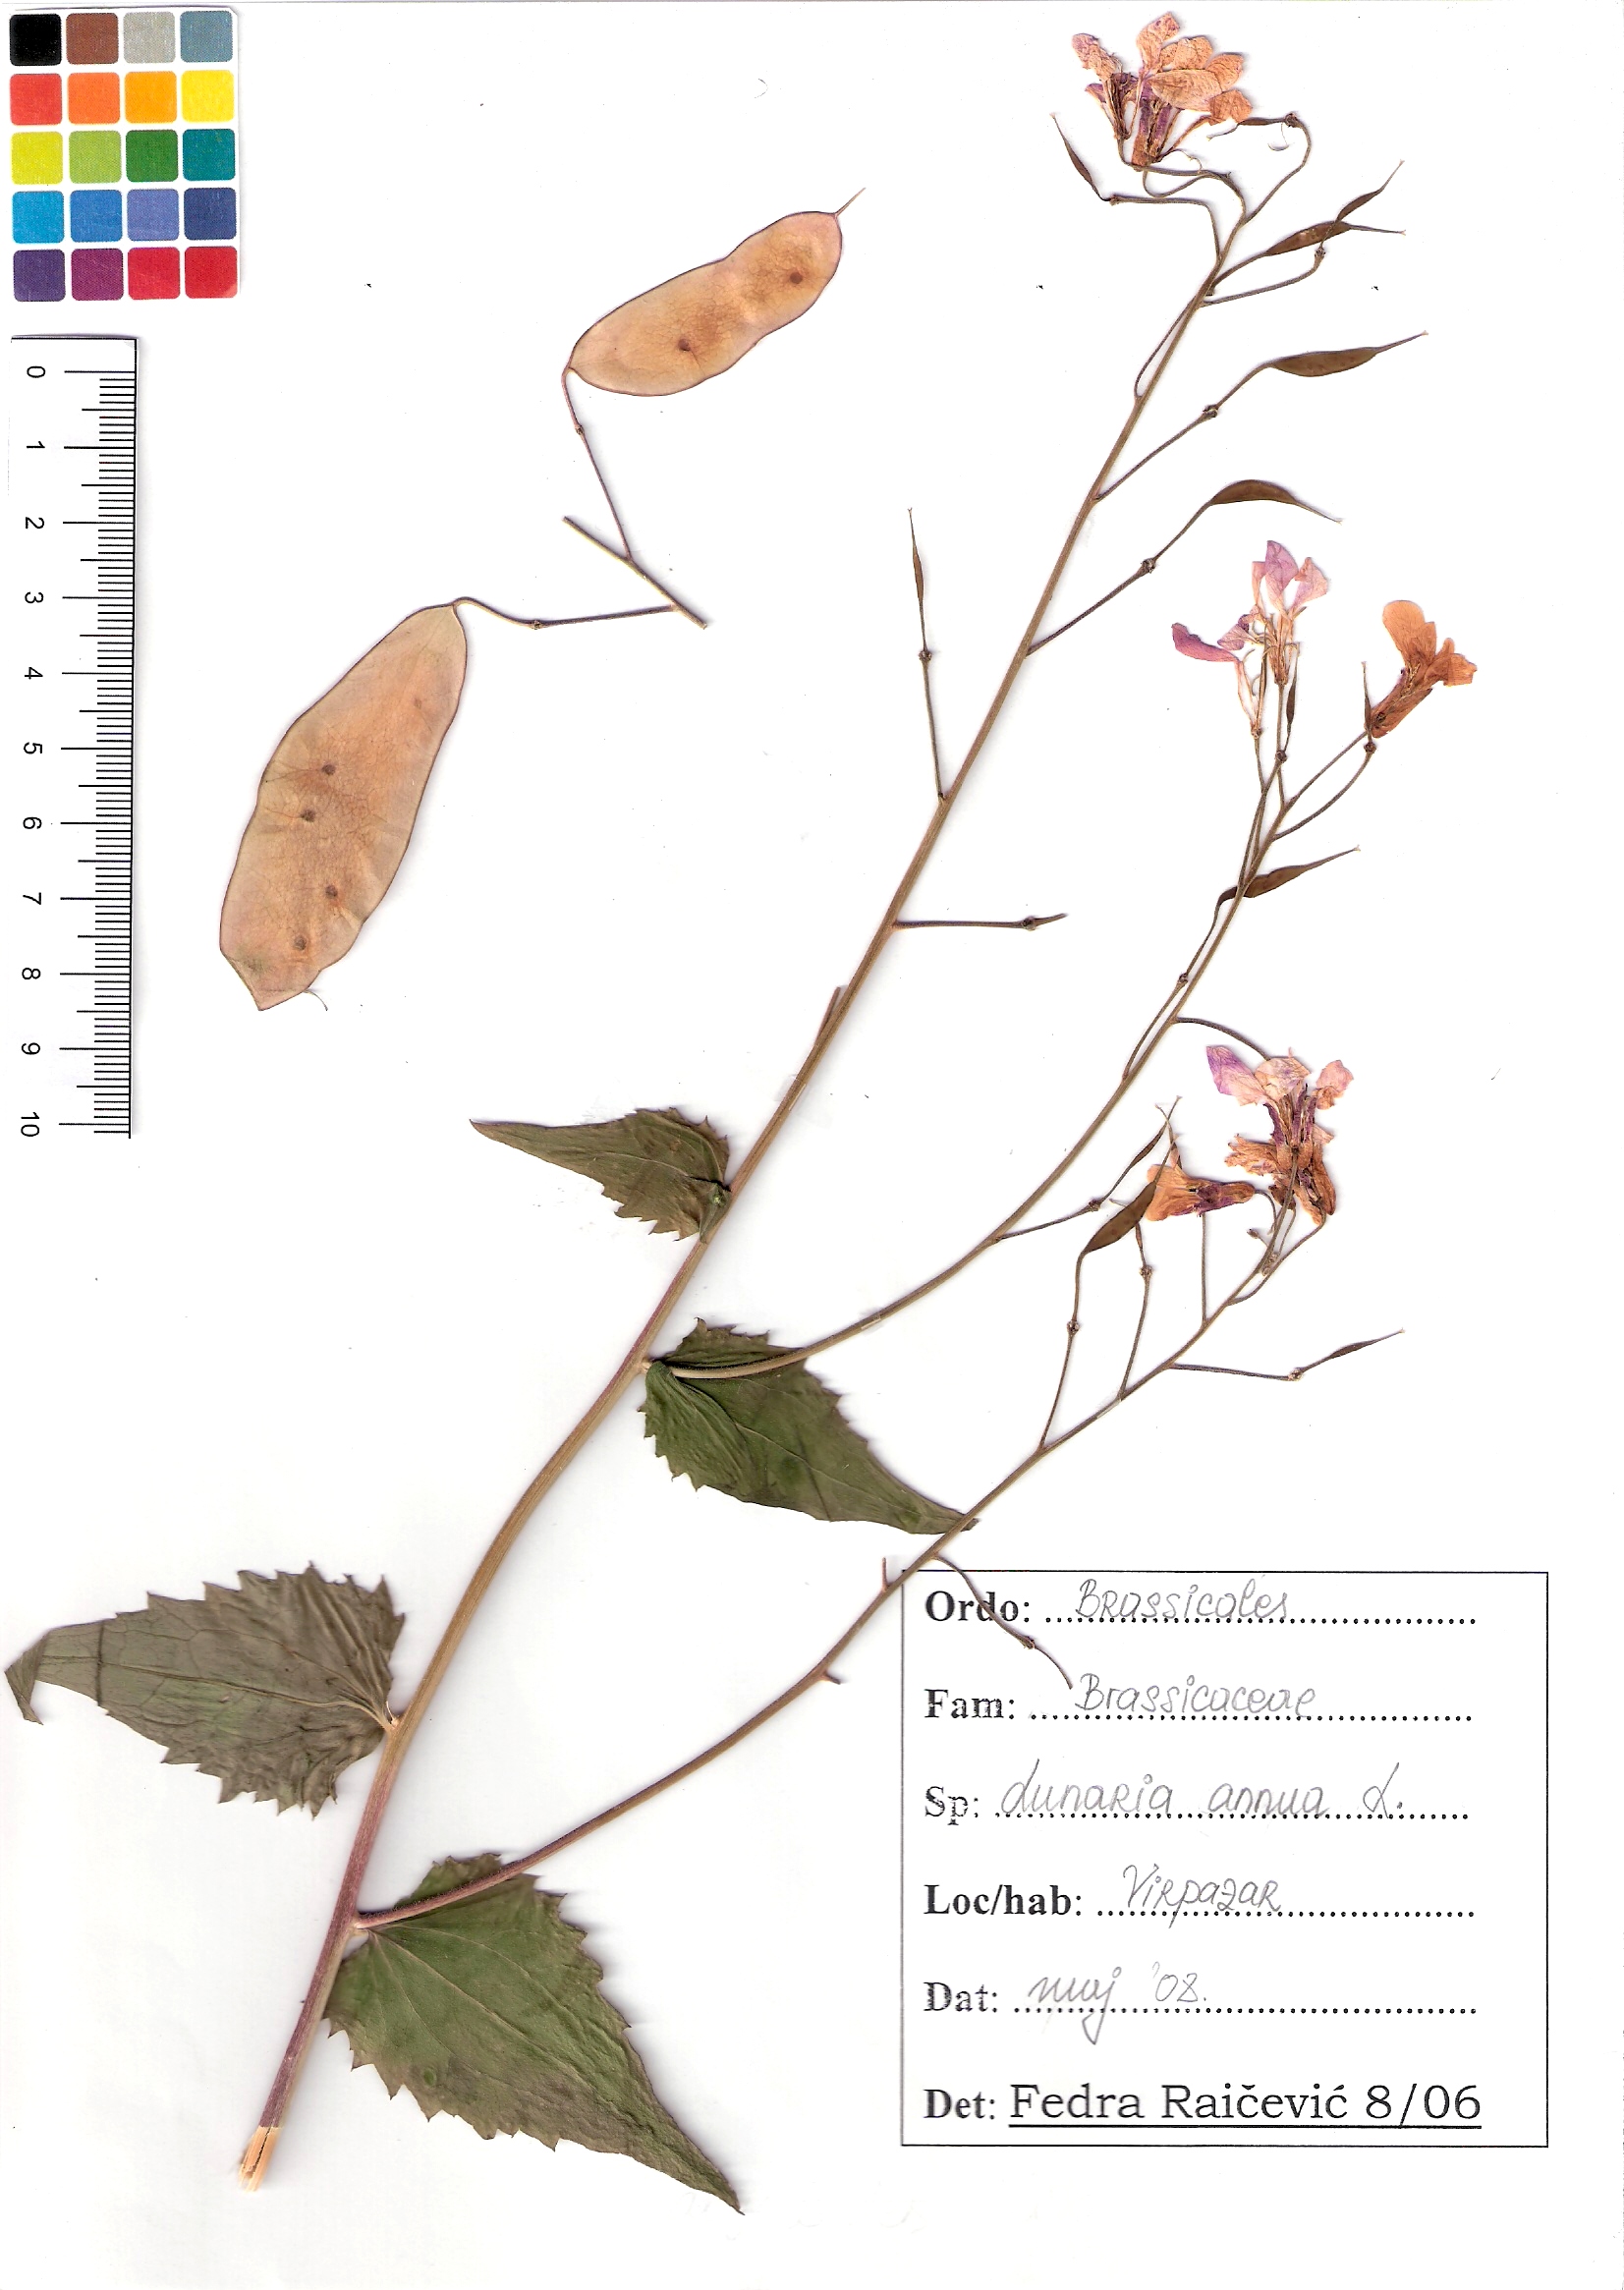 0
1
2
3
4
5
6
7
8
9
10
Ordo: Brassicales
Fam: Brassicaceae
Sp: Lunaria annua L.
Loc/hab: Virpazar
Dat: maj '08.
Det: Fedra Raičević 8/06